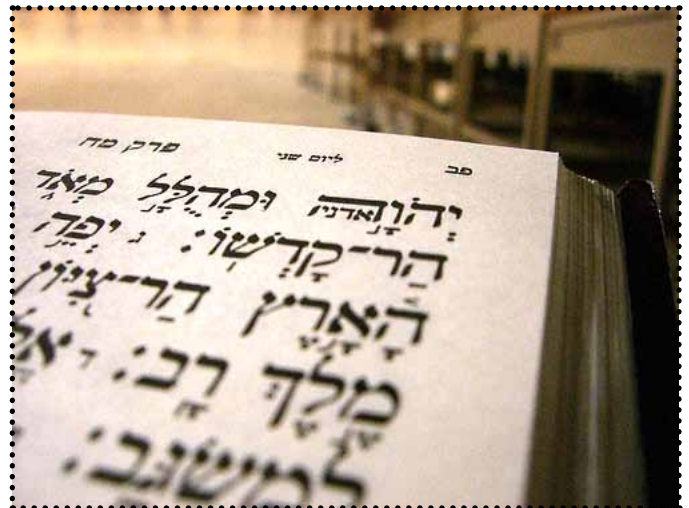 פב ליום שני פרק מח
יְהֹוָאדניה וּמְהֻלָּל מְאֹד
הַר־קָדְשׁוֹ׃ ג יְפֵה
הָאָרֶץ הַר־צִיּוֹן
מֶלֶךְ רָב׃ ד
לְמִשְׂגָּב׃